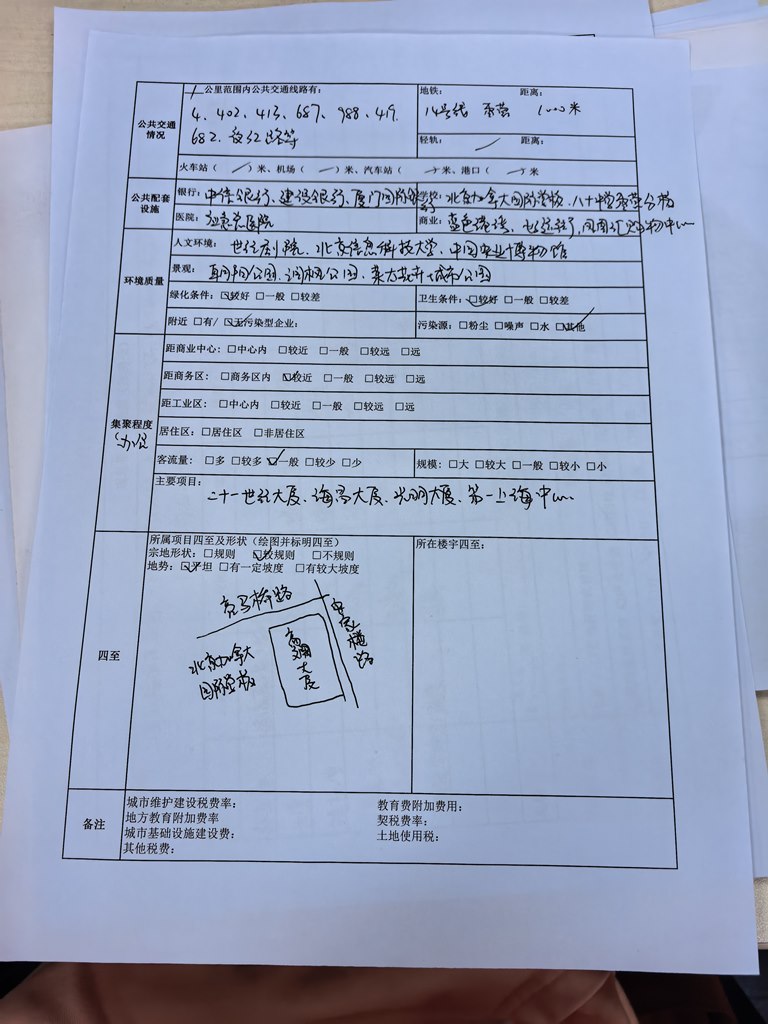 公共交通情况
一公里范围内公共交通线路有：
4、402、413、687、988、419、
682、
路等
地铁： 距离：
14号线 1000米
轻轨： / 距离：
火车站（ / ）米、机场（ / ）米、汽车站（ / ）米、港口（ / ）米
公共配套设施
银行：中信银行、建设银行、厦门国际银行
学校：北京加拿大国际学校、八十中学
分校
医院：
医院
商业：蓝色港湾、
购物中心
环境质量
人文环境：世纪剧院、北京信息科技大学、中国农业博物馆
景观：朝阳公园、
公园、
城市公园
绿化条件：☑较好 □一般 □较差
卫生条件：☑较好 □一般 □较差
附近 □有/ ☑无污染型企业：
污染源：□粉尘 □噪声 □水 ☑其他
集聚程度
办公
距商业中心：□中心内 □较近 □一般 □较远 □远
距商务区：□商务区内 ☑较近 □一般 □较远 □远
距工业区：□中心内 □较近 □一般 □较远 □远
居住区：□居住区 □非居住区
客流量：□多 □较多 ☑一般 □较少 □少
规模：□大 □较大 □一般 □较小 □小
主要项目：
二十一世纪大厦、海高大厦、光明大厦、第一上海中心
四至
所属项目四至及形状（绘图并标明四至）
宗地形状：□规则 ☑较规则 □不规则
地势：☑平坦 □有一定坡度 □有较大坡度
所在楼宇四至：
亮马桥路
路
北京加拿大
国际学校
大厦
备注
城市维护建设税费率：
教育费附加费用：
地方教育附加费率
契税费率：
城市基础设施建设费：
土地使用税：
其他税费：